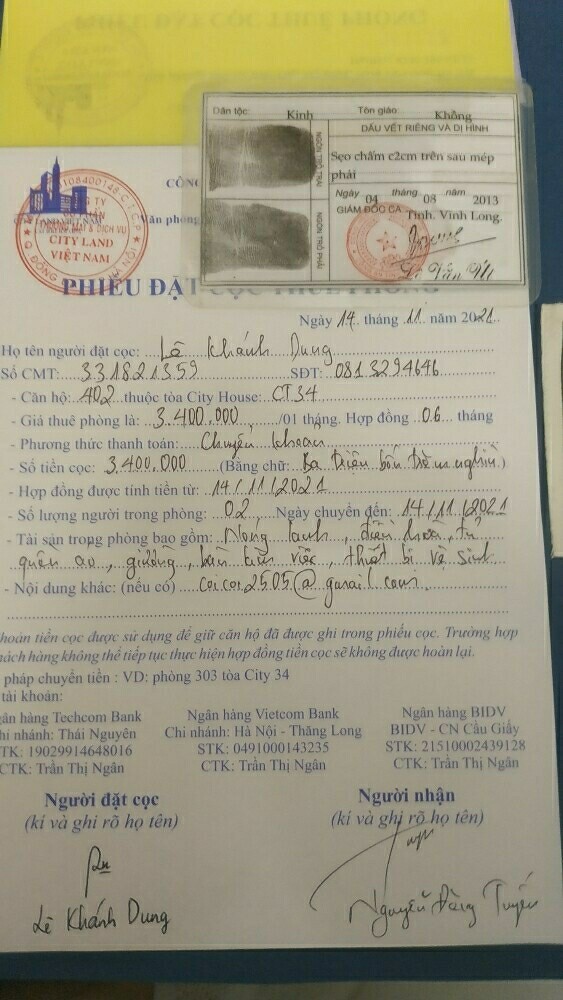 Dân tộc: Kinh Tôn giáo: Không
DẤU VẾT RIÊNG VÀ DỊ HÌNH
Sẹo chấm c2cm trên sau mép
phải
NGÓN TRỎ TRÁI
NGÓN TRỎ PHẢI
Ngày 04 tháng 08 năm 2013
GIÁM ĐỐC CA Tỉnh. Vĩnh Long.
CÔNG
Văn phòng
CITY LAND
VIỆT NAM
PHIẾU ĐẶT CỌC THUÊ PHÒNG
Ngày 14 tháng 11 năm 2021
Họ tên người đặt cọc: Lê Khánh Dung
Số CMT: 331821359 SĐT: 0813294646
- Căn hộ: 402 thuộc tòa City House: CT34
- Giá thuê phòng là: 3.400.000 /01 tháng. Hợp đồng 06 tháng
- Phương thức thanh toán: Chuyển khoản
- Số tiền cọc: 3.400.000 (Bằng chữ: Ba triệu bốn trăm nghìn.)
- Hợp đồng được tính tiền từ: 14/11/2021
- Số lượng người trong phòng: 02 Ngày chuyển đến: 14/11/2021
- Tài sản trong phòng bao gồm: Nóng lạnh, điều hoà, tủ
quần áo, giường, bàn làm việc, thiết bị vệ sinh
- Nội dung khác: (nếu có) coicoi2505@gmail.com
hoản tiền cọc được sử dụng để giữ căn hộ đã được ghi trong phiếu cọc. Trường hợp
hách hàng không thể tiếp tục thực hiện hợp đồng tiền cọc sẽ không được hoàn lại.
pháp chuyển tiền : VD: phòng 303 tòa City 34
tài khoản:
gân hàng Techcom Bank
hi nhánh: Thái Nguyên
TK: 19029914648016
CTK: Trần Thị Ngân
Ngân hàng Vietcom Bank
Chi nhánh: Hà Nội - Thăng Long
STK: 0491000143235
CTK: Trần Thị Ngân
Ngân hàng BIDV
BIDV - CN Cầu Giấy
STK: 21510002439128
CTK: Trần Thị Ngân
Người đặt cọc
(kí và ghi rõ họ tên)
Lê Khánh Dung
Người nhận
(kí và ghi rõ họ tên)
Nguyễn Đăng Tuyến